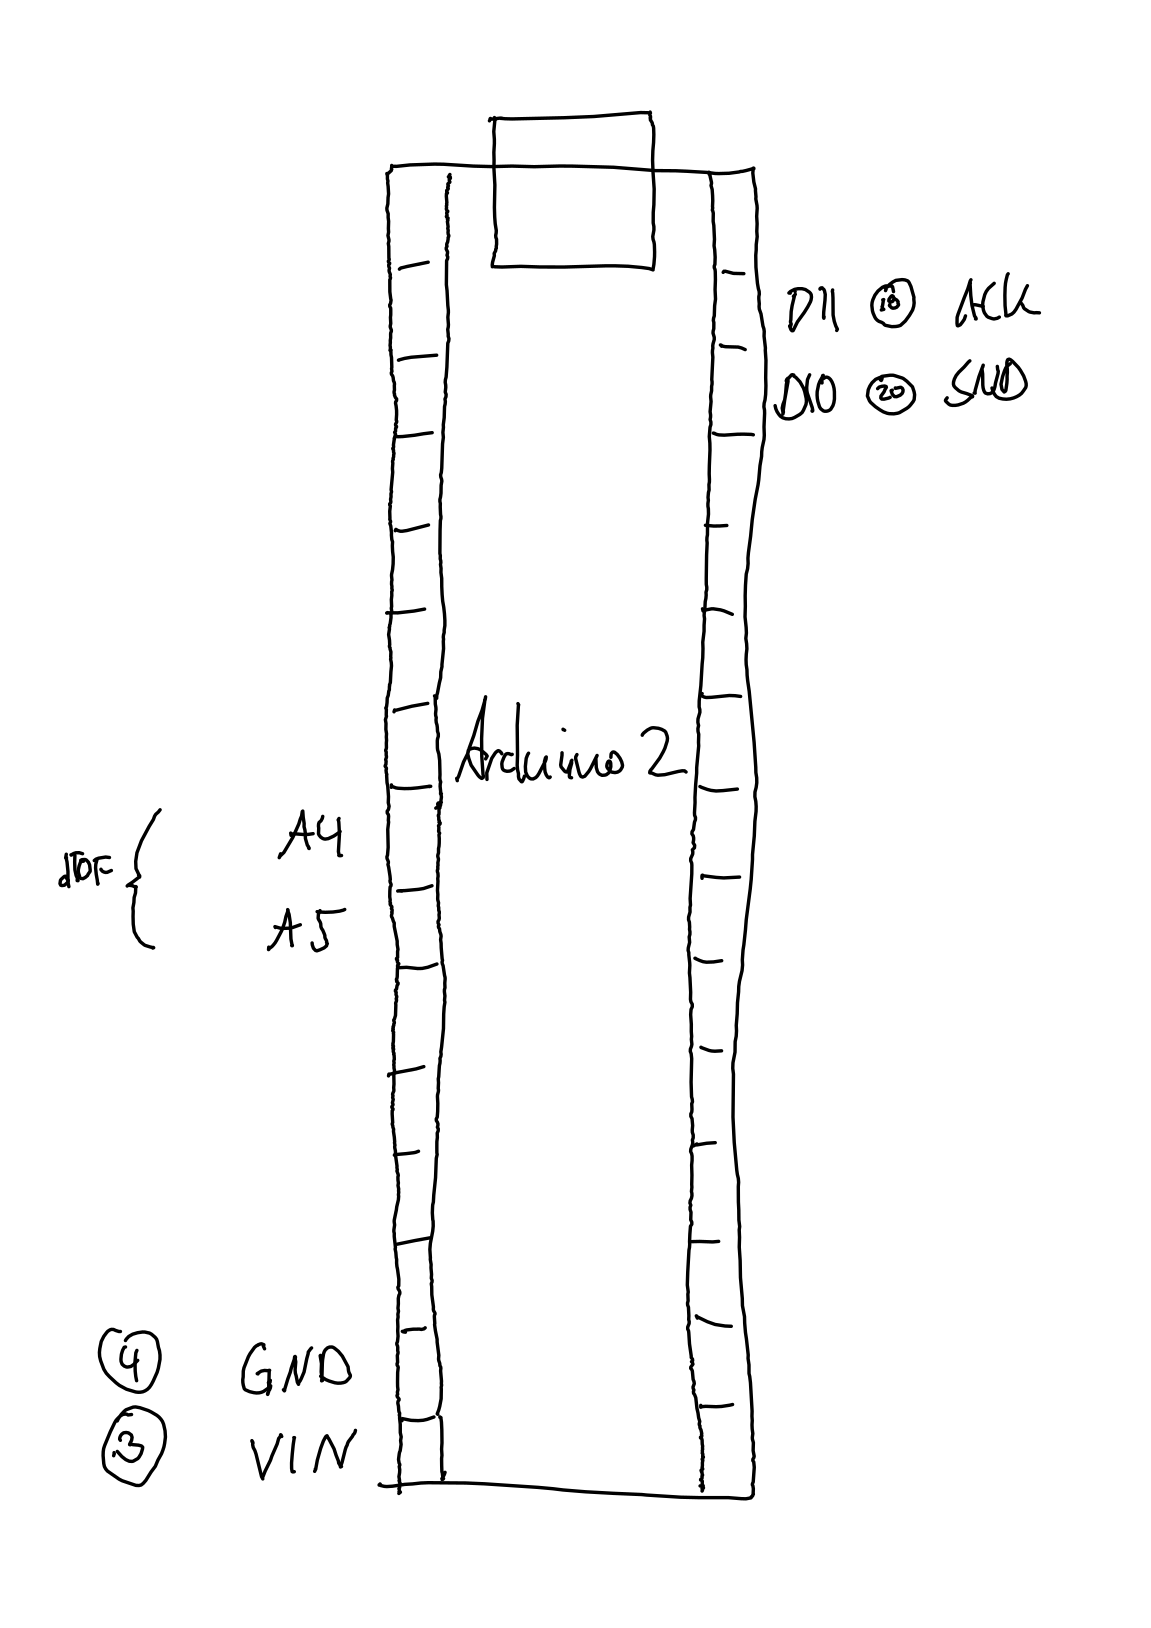 D11 18 ACK
D10 20 SND
Arduino 2
A4
dTOF {
A5
4 GND
3 VIN